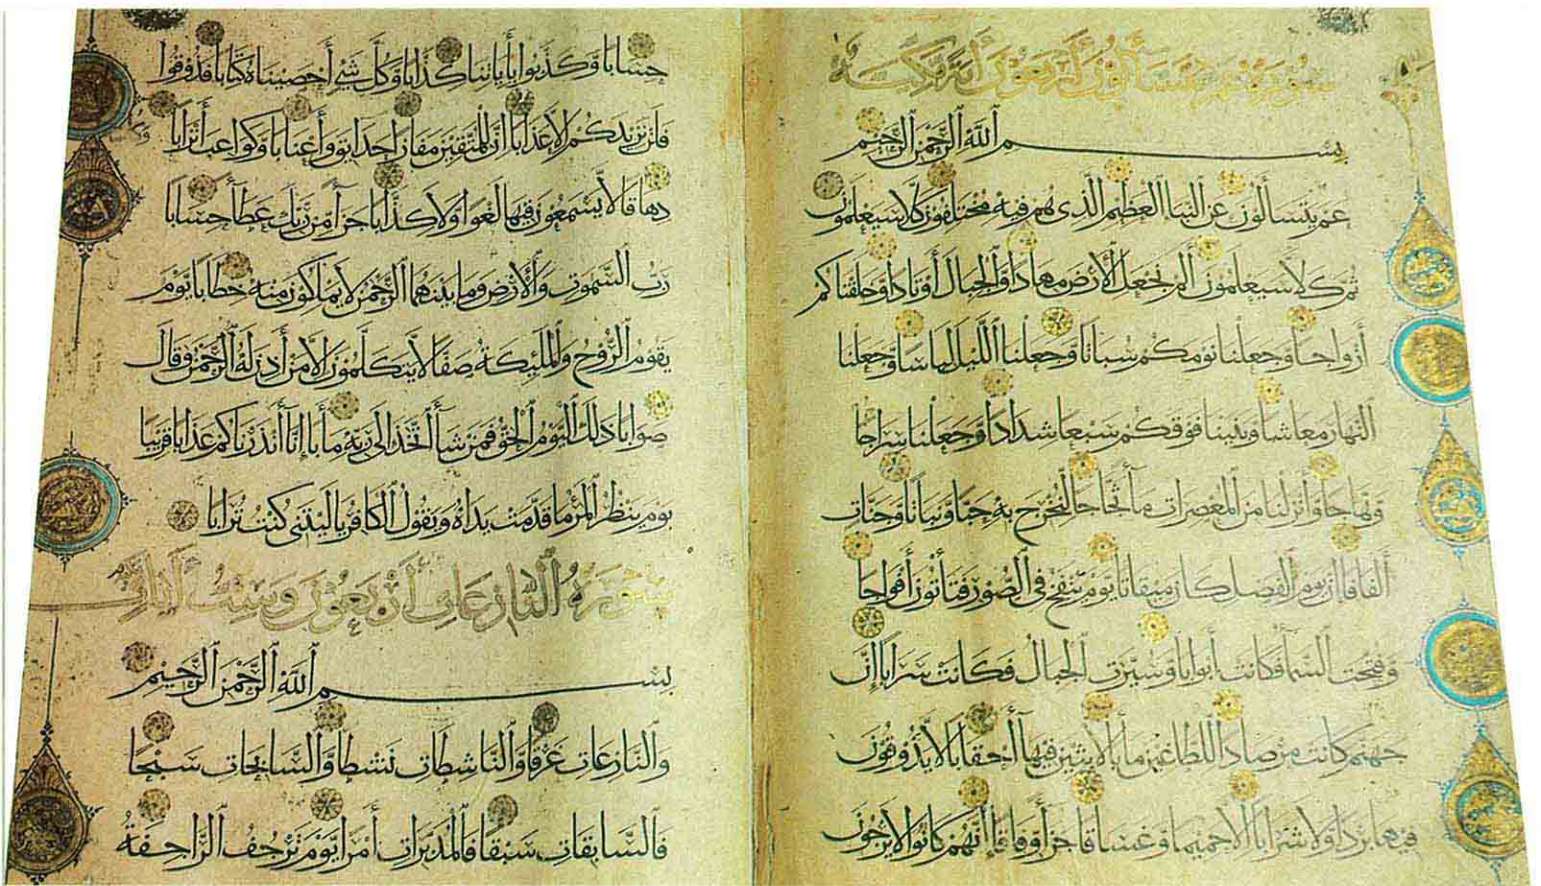 سورة يتساءلون أربعون آية مكية
بسم الله الرحمن الرحيم
عم يتسألون عن النبإ العظيم الذي هم فيه مختلفون كلا سيعلمون
ثم كلا سيعلمون ألم نجعل الأرض مهادا والجبال أوتادا وخلقناكم
أزواجا وجعلنا نومكم سباتا وجعلنا الليل لباسا وجعلنا
النهار معاشا وبنينا فوقكم سبعا شدادا وجعلنا سراجا
وهاجا وأنزلنا من المعصرات مآ ثجاجا لنخرج به حبا ونباتا وجنات
ألفافا إن يوم الفصل كان ميقاتا يوم ينفخ في الصور فتأتون أفواجا
وفتحت السمآ فكانت أبوابا وسيرت الجبال فكانت سرابا إن
جهنم كانت مرصادا للطاغين مآبا لابثين فيها أحقابا لا يذوقون
فيها بردا ولا شرابا إلا حميما وغساقا جزآ وفاقا إنهم كانوا لا يرجون
حسابا وكذبوا بأياتنا كذابا وكل شيء أحصيناه كتابا فذوقوا
فلن نزيدكم إلا عذابا إن للمتقين مفازا حدايق وأعنابا وكواعب أترابا
وكأسا دهاقا لا يسمعون فيها لغوا ولا كذابا جزآ من ربك عطآ حسابا
رب السموت والأرض وما بينهما الرحمن لا يملكون منه خطابا يوم
يقوم الروح والمليكة صفا لا يتكلمون إلا من أذن له الرحمن وقال
صوابا ذلك اليوم الحق فمن شآ اتخذ إلى ربه مأبا إنا أنذرناكم عذابا قريبا
يوم ينظر المرء ما قدمت يداه ويقول الكافر ياليتني كنت ترابا
سورة النازعات أربعون وست آيات
بسم الله الرحمن الرحيم
والنازعات غرقا والناشطات نشطا والسابحات سبحا
فالسابقات سبقا فالمدبرات أمرا يوم ترجف الراجفة